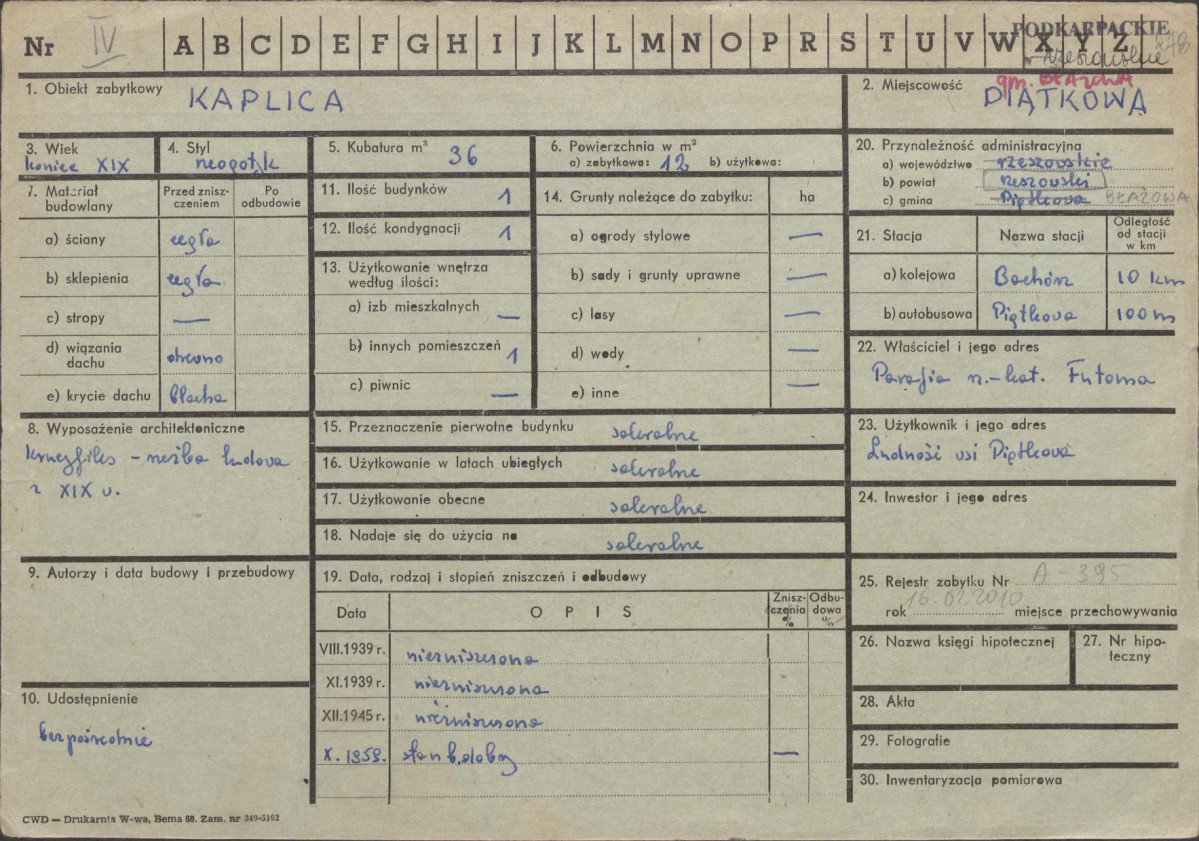 Nr IV A B C D E F G H I J K L M N O P R S T U V W X Y Z
PODKARPACKIE
rzeszowskie
1. Obiekt zabytkowy KAPLICA
gm. BŁAZOWA
2. Miejscowość PIĄTKOWA
3. Wiek
koniec XIX
4. Styl
neogotyk
5. Kubatura m³ 36
6. Powierzchnia w m²
a) zabytkowa: 12 b) użytkowa:
7. Materiał budowlany
Przed zniszczeniem
Po odbudowie
a) ściany cegła
b) sklepienia cegła
c) stropy —
d) wiązania dachu drewno
e) krycie dachu blacha
8. Wyposażenie architektoniczne
krucyfiks - rzeźba ludowa
z XIX w.
9. Autorzy i data budowy i przebudowy
10. Udostępnienie
bezpośrednie
11. Ilość budynków 1
12. Ilość kondygnacji 1
13. Użytkowanie wnętrza
według ilości:
a) izb mieszkalnych —
b) innych pomieszczeń 1
c) piwnic —
14. Grunty należące do zabytku: ha
a) ogrody stylowe —
b) sady i grunty uprawne —
c) lasy —
d) wody —
e) inne —
15. Przeznaczenie pierwotne budynku sakralne
16. Użytkowanie w latach ubiegłych sakralne
17. Użytkowanie obecne sakralne
18. Nadaje się do użycia na sakralne
19. Data, rodzaj i stopień zniszczeń i odbudowy
Data OPIS Zniszczenia % Odbudowa %
VIII.1939 r. niezniszczona
XI.1939 r. niezniszczona
XII.1945 r. niezniszczona
X. 1959. stan b. dobry —
20. Przynależność administracyjna
a) województwo rzeszowskie
b) powiat rzeszowski
c) gmina Piątkowa BŁAŻOWA
21. Stacja Nazwa stacji Odległość od stacji w km
a) kolejowa Bachórz 10 km
b) autobusowa Piątkowa 100 m
22. Właściciel i jego adres
Parafia rz.-kat. Futoma
23. Użytkownik i jego adres
Ludność wsi Piątkowa
24. Inwestor i jego adres
25. Rejestr zabytku Nr A-395
rok 16.02.2010 miejsce przechowywania
26. Nazwa księgi hipotecznej
27. Nr hipoteczny
28. Akta
29. Fotografie
30. Inwentaryzacja pomiarowa
CWD — Drukarnia W-wa, Bema 60. Zam. nr 349-5162